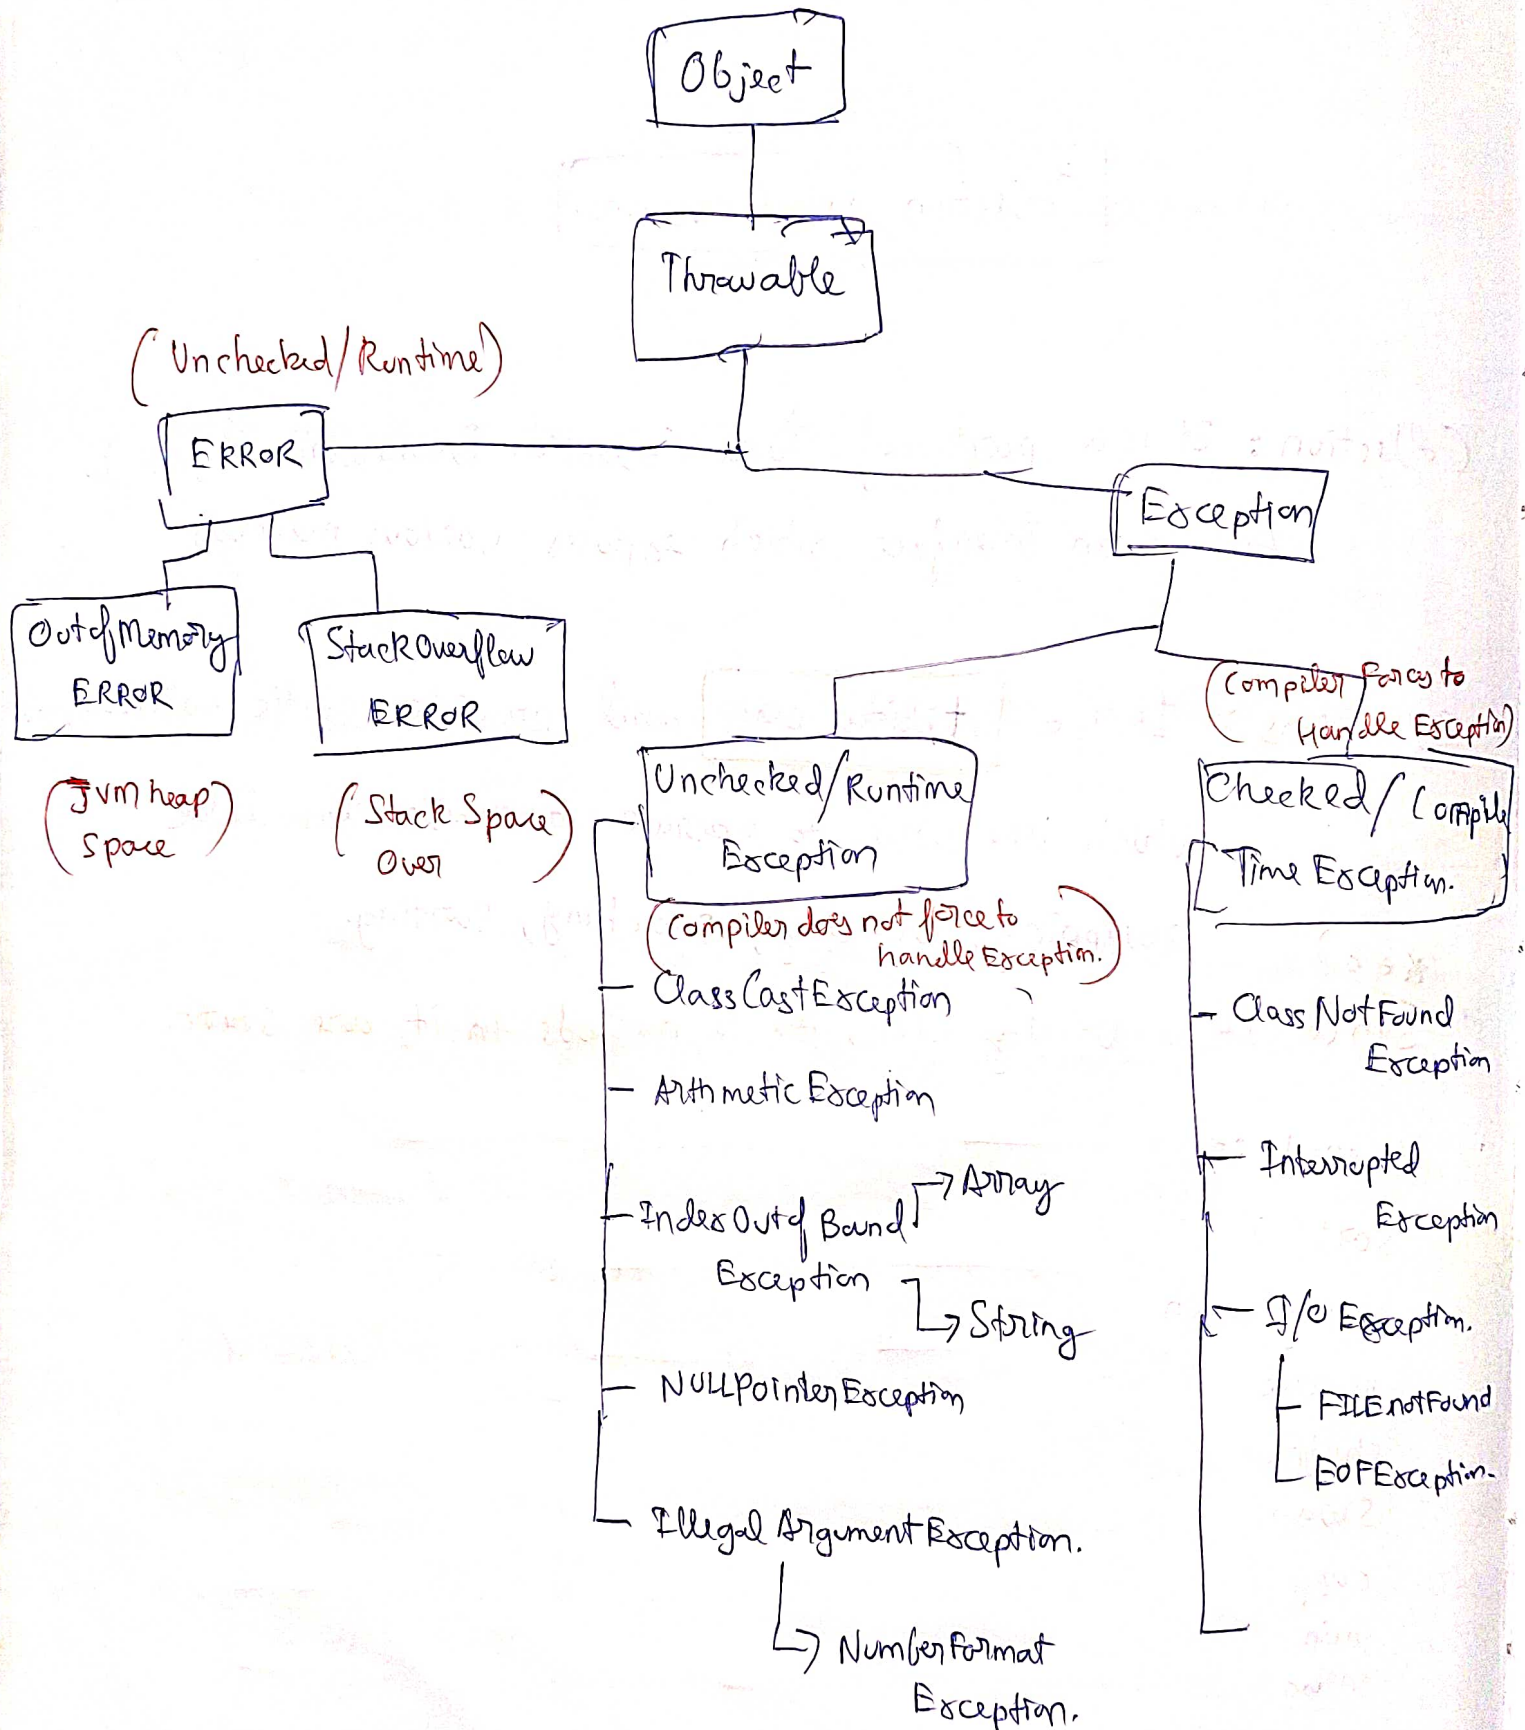 Object
Throwable
(Unchecked/Runtime)
ERROR
Exception
OutofMemory
ERROR
StackOverflow
ERROR
(JVM heap
Space)
(Stack Space
Over)
(Compiler Forces to
Handle Exception)
Unchecked/Runtime
Exception
Checked/Compile
Time Exception.
(Compiler does not force to
handle Exception.)
ClassCastException
ArthmeticException
IndexOutof Bound
Exception
Array
String
NULLPointerException
Illegal ArgumentException.
NumberFormat
Exception.
Class NotFound
Exception
Interrupted
Exception
I/O Exception.
FILEnotFound
EOFException.